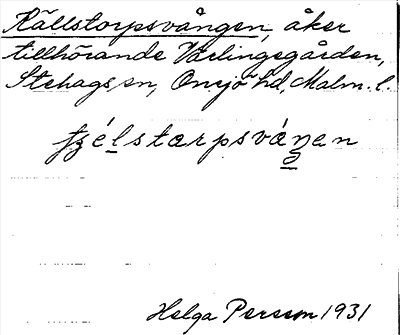 Källstorpsvången, åker
tillhörande Varlingegården,
Stehags sn, Onsjö hd, Malm. l.
Helga Persson 1931